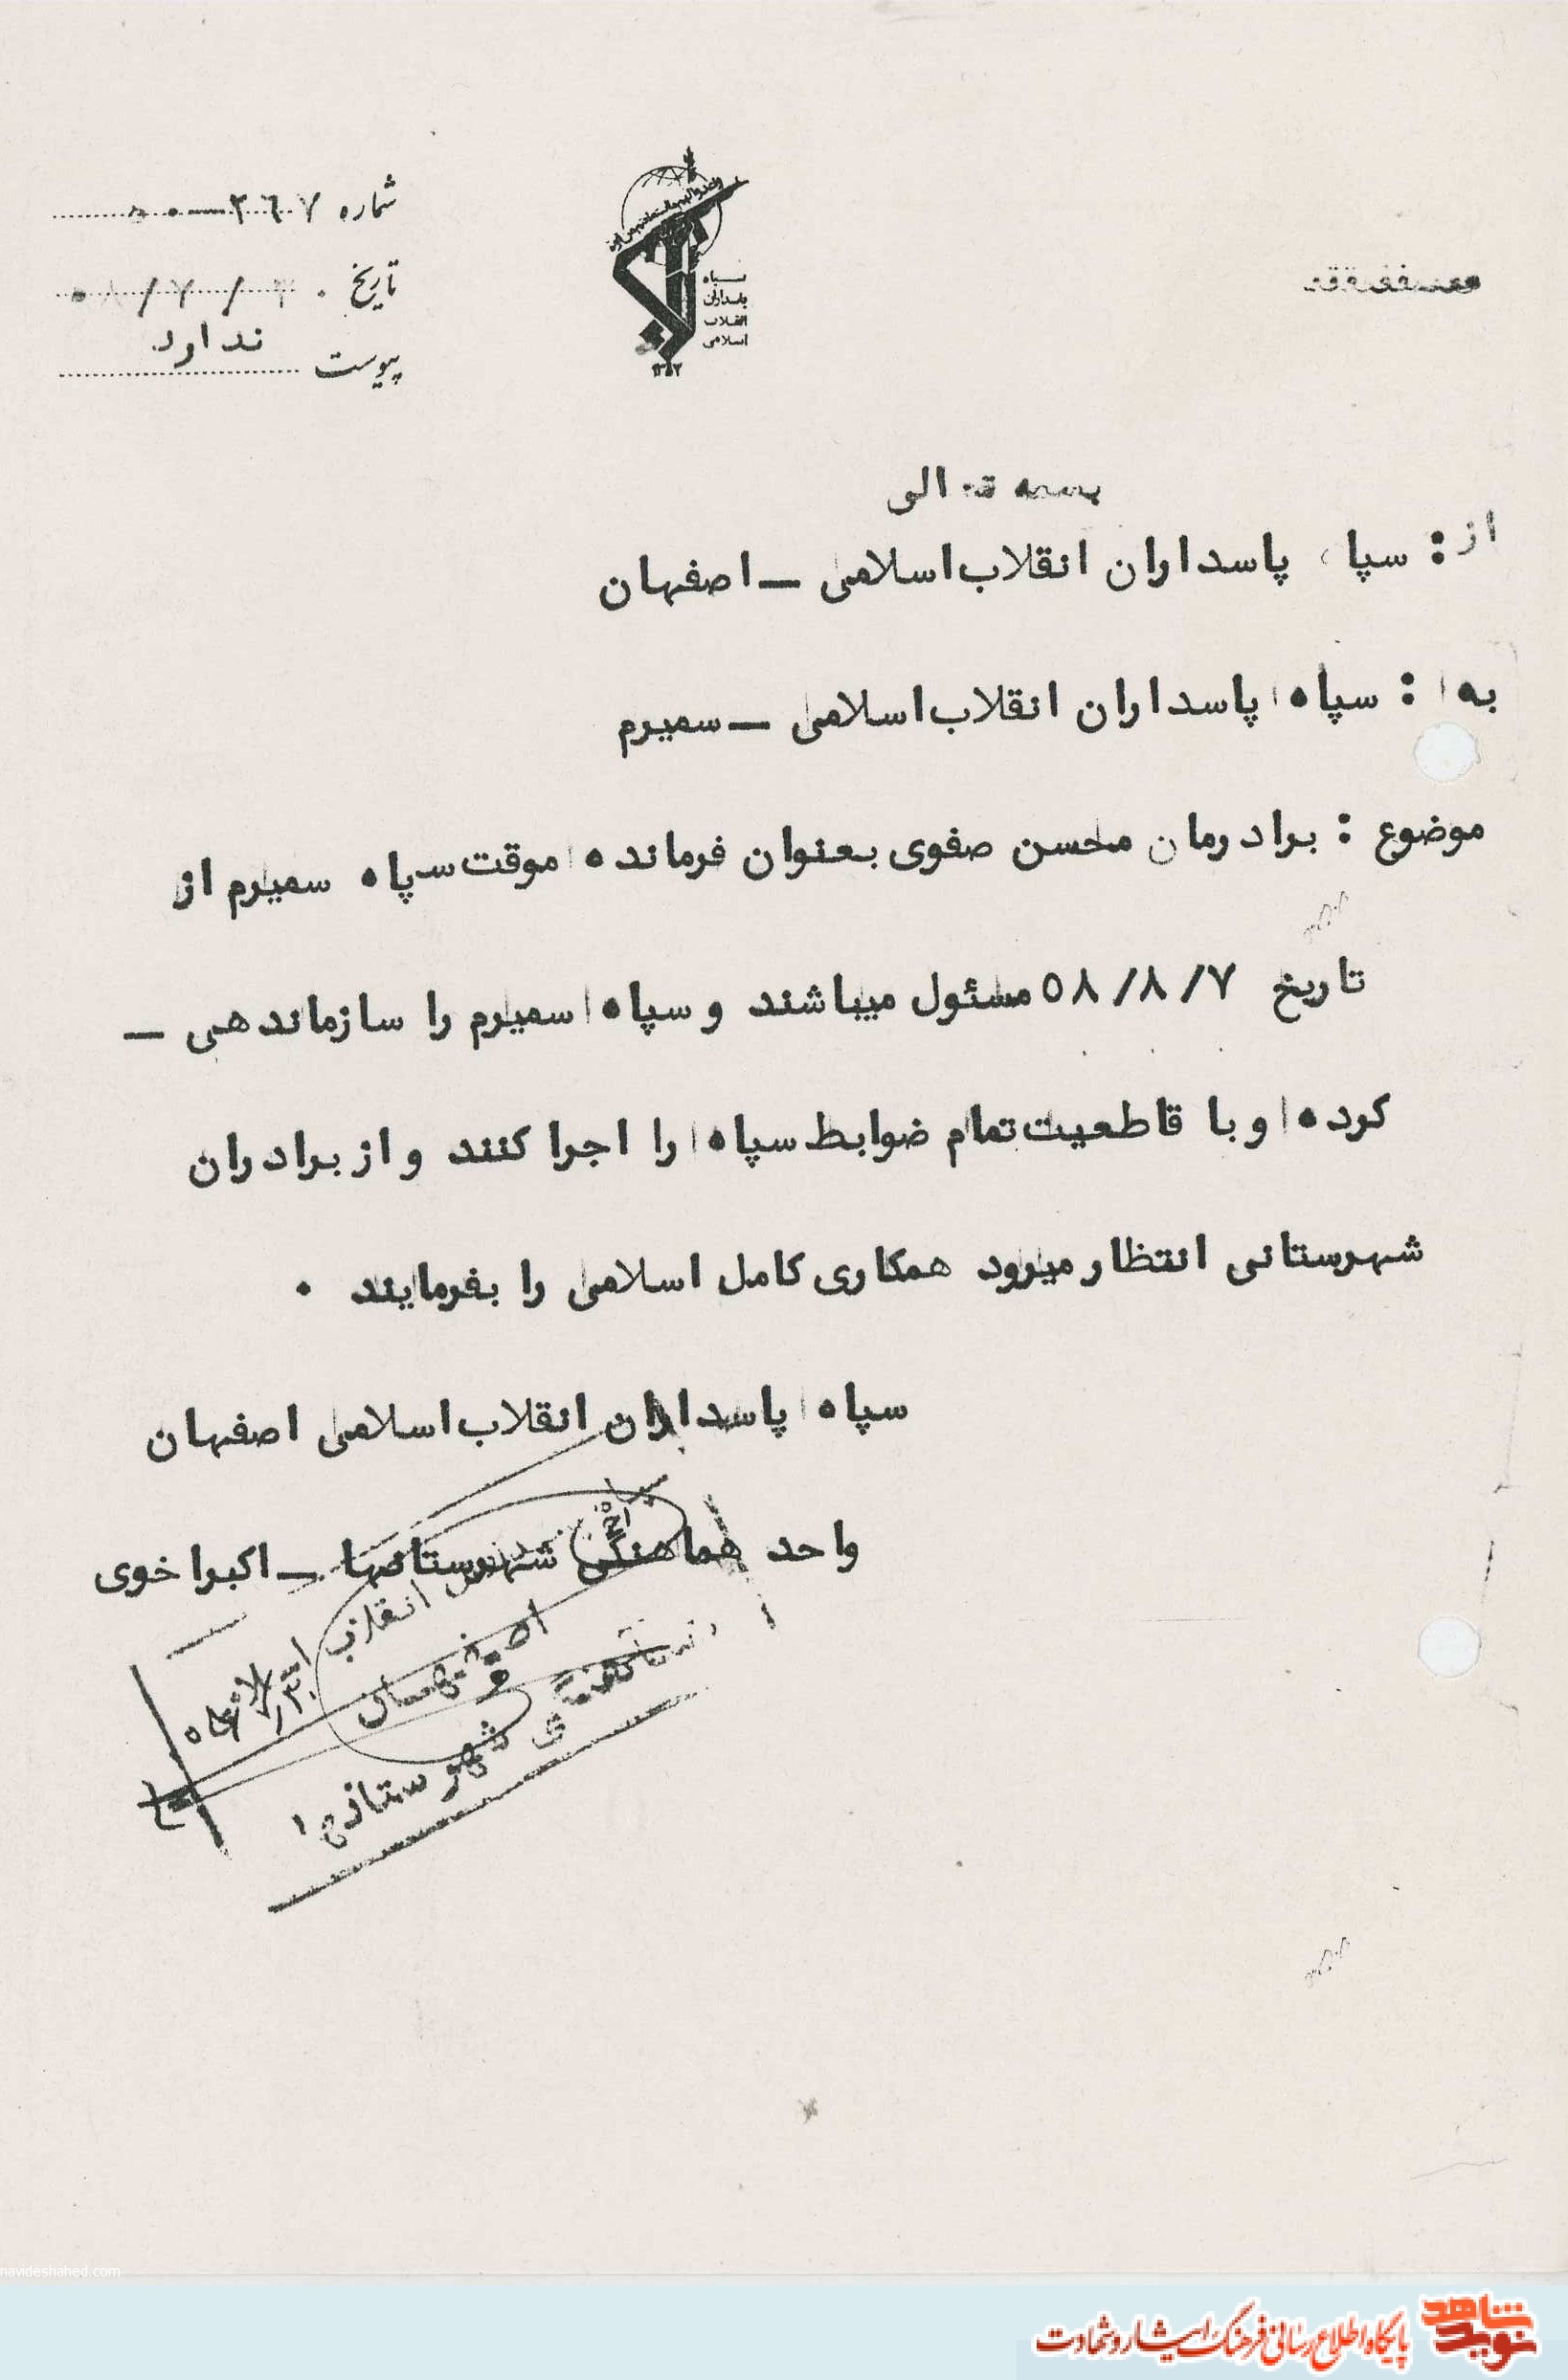 شماره ۳٦۷-۵۰
تاریخ ۵۸/۷/۳۰
پیوست ندارد
سپاه
پاسداران
انقلاب
اسلامی
بسمه تعالی
از : سپاه پاسداران انقلاب اسلامی - اصفهان
به : سپاه پاسداران انقلاب اسلامی - سمیرم
موضوع : برادرمان محسن صفوی بعنوان فرمانده موقت سپاه سمیرم از
تاریخ ۵۸/۸/۷ مسئول میباشند و سپاه سمیرم را سازماندهی -
کرده و با قاطعیت تمام ضوابط سپاه را اجرا کنند و از برادران
شهرستانی انتظار میرود همکاری کامل اسلامی را بفرمایند .
سپاه پاسداران انقلاب اسلامی اصفهان
واحد هماهنگی شهرستانها - اکبر اخوی
انقلاب
اصفهان
شهرستانها
navideshahed.com
نوید شاهد
پایگاه اطلاع رسانی فرهنگ ایثار و شهادت